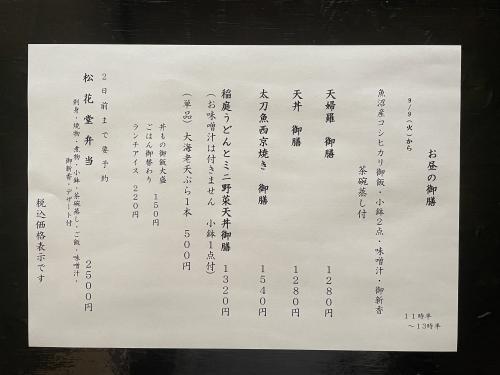 お昼の御膳
11時半
~13時半
9/9(火)から
魚沼産コシヒカリ御飯・小鉢2点・味噌汁・御新香
茶碗蒸し付
天婦羅 御膳 1280円
天丼 御膳 1280円
太刀魚西京焼き 御膳 1540円
稲庭うどんとミニ野菜天丼御膳 1320円
(お味噌汁は付きません 小鉢1点付)
(単品)大海老天ぷら1本 500円
丼もの御飯大盛 150円
ごはん御替わり
ランチアイス 220円
2日前まで要予約
松花堂弁当 2500円
刺身・焼物・煮物・小鉢・茶碗蒸し・ご飯・味噌汁・
御新香・デザート付
税込価格表示です